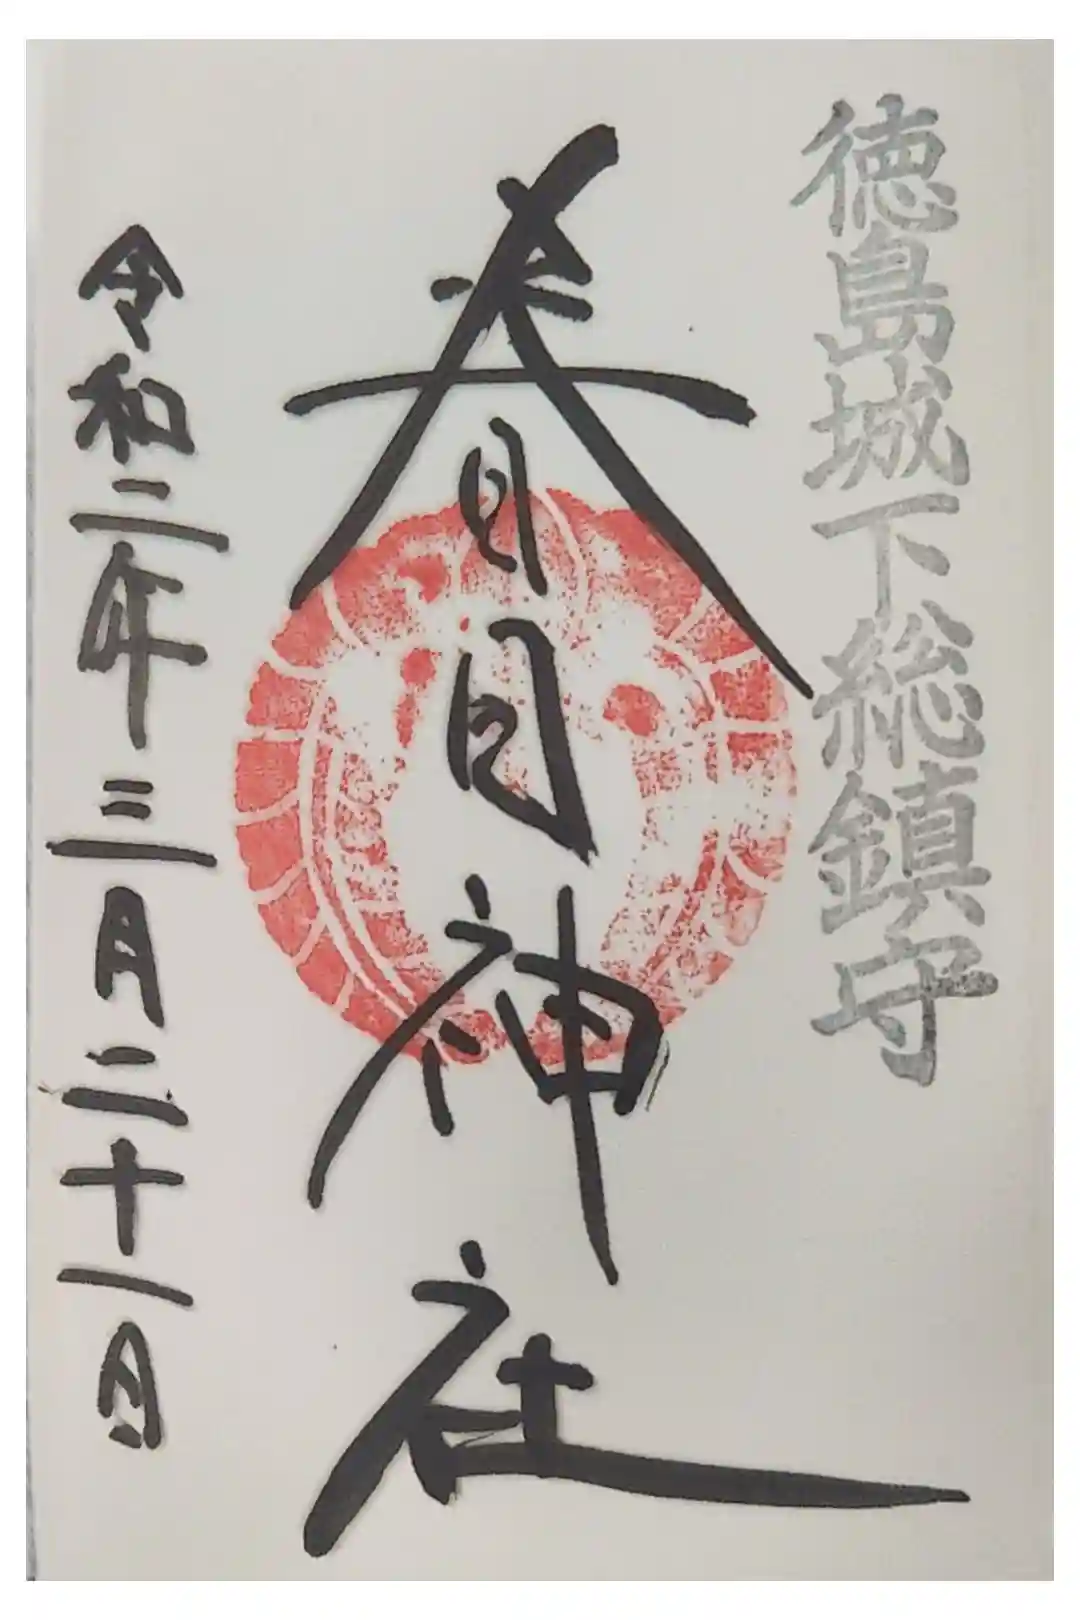 徳島城下総鎮守
春日神社
令和二年三月二十一日